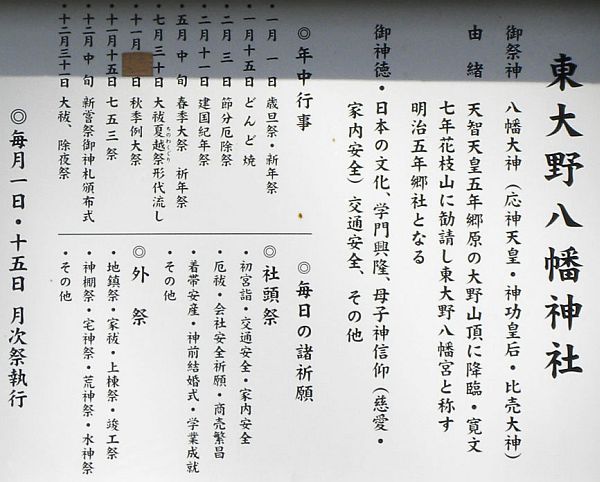 東大野八幡神社
御祭神　八幡大神（応神天皇・神功皇后・比売大神）
由緒　天智天皇五年郷原の大野山頂に降臨・寛文
七年花枝山に勧請し東大野八幡宮と称す
明治五年郷社となる
御神徳・日本の文化、学門興隆、母子神信仰（慈愛・
家内安全）交通安全、その他
◎年中行事
・一月一日　歳旦祭・新年祭
・一月十五日　どんど焼
・二月三日　節分厄除祭
・二月十一日　建国紀年祭
・五月中旬　春季大祭　祈年祭
・七月三十日　大祓夏越祭形代流し
・十一月　日　秋季例大祭
・十一月十五日　七五三祭
・十二月中旬　新嘗祭御神札頒布式
・十二月三十一日　大祓、除夜祭
◎毎日の諸祈願
◎社頭祭
・初宮詣・交通安全・家内安全
・厄祓・会社安全祈願・商売繁昌
・着帯安産・神前結婚式・学業成就
・その他
◎外祭
・地鎮祭・家祓・上棟祭・竣工祭
・神棚祭・宅神祭・荒神祭・水神祭
・その他
◎毎月一日・十五日　月次祭執行